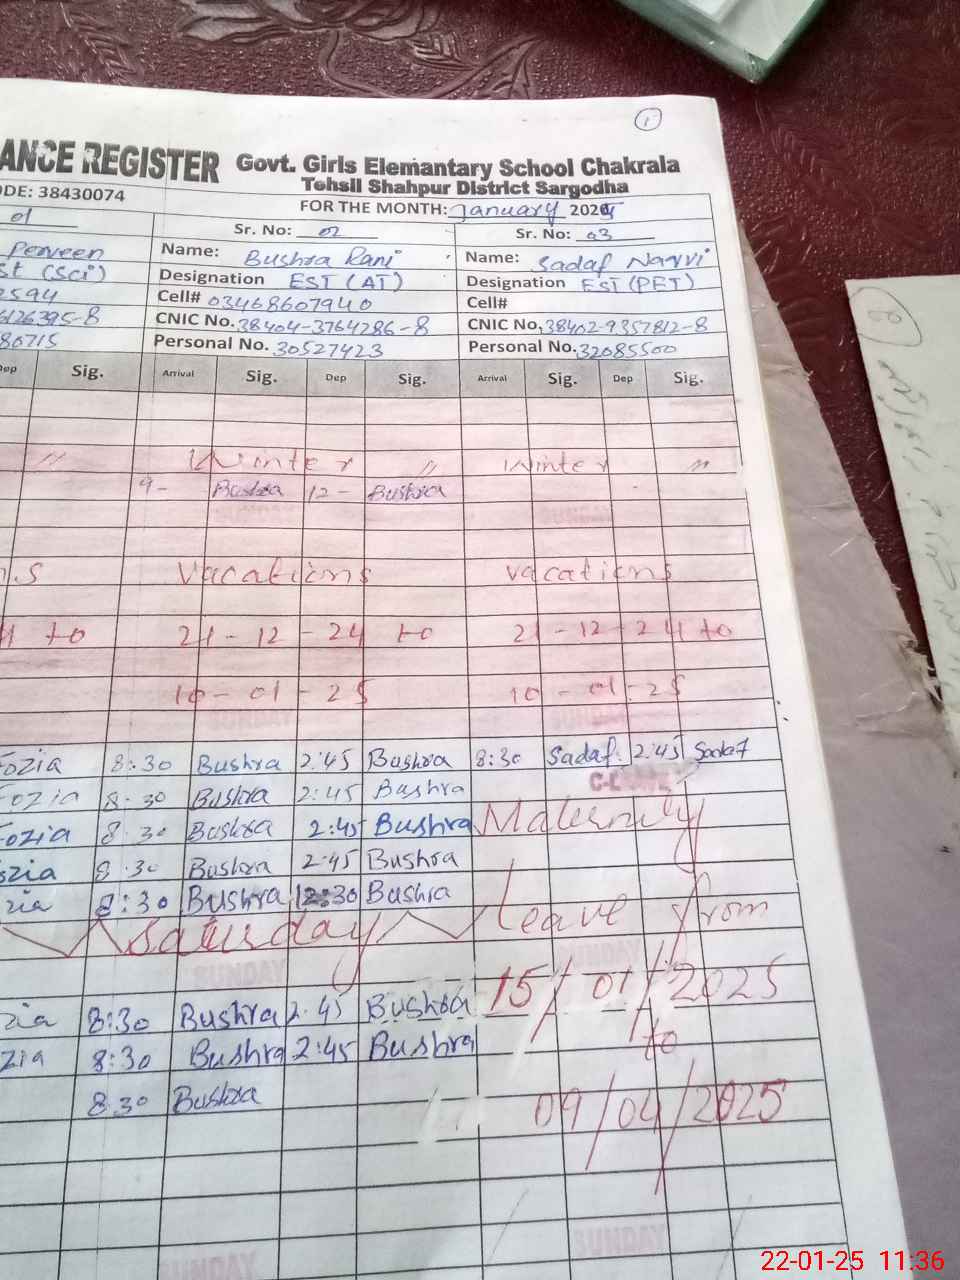 ANCE REGISTER Govt. Girls Elemantary School Chakrala
Tehsil Shahpur District Sargodha
DE: 38430074 FOR THE MONTH: January 2025
1
01 Sr. No: 02 Sr. No: 03
Perveen Name: Bushra Rani Name: Sadaf Naqvi
st (Sci) Designation EST (AT) Designation EST (PET)
2594 Cell# 03468607940 Cell#
6126395-8 CNIC No. 38404-3764286-8 CNIC No. 38402-9357812-8
80715 Personal No. 30527423 Personal No. 32085500
Dep Sig. Arrival Sig. Dep Sig. Arrival Sig. Dep Sig.
" Winter " Winter "
9- Bushra 12- Bushra
SUNDAY SUNDAY
n.s vacations vacations
4 to 21-12-24 to 21-12-24 to
10-01-25 10-01-25
SUNDAY SUNDAY
Fozia 8:30 Bushra 2:45 Bushra 8:30 Sadaf 2:45 Sadaf
Fozia 8:30 Bushra 2:45 Bushra
Fozia 8:30 Bushra 2:45 Bushra Maternity
ozia 8:30 Bushra 2:45 Bushra
zia 8:30 Bushra 12:30 Bushra Leave from
Saturday
SUNDAY SUNDAY
zia 8:30 Bushra 2:45 Bushra 15/01/2025
ozia 8:30 Bushra 2:45 Bushra to
8:30 Bushra 09/04/2025
SUNDAY SUNDAY
22-01-25 11:36